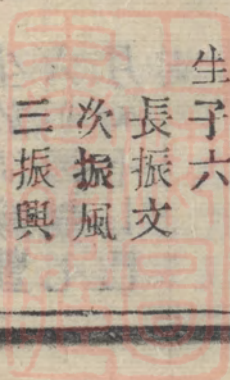 生子六
長振文
次振風
三振興